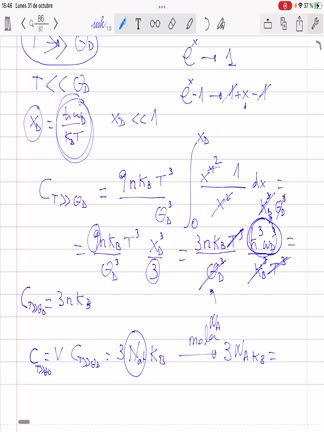 15:46 Lunes 31 de octubre
37 %
86
67
T >> Θ_D
e^x → 1
T << Θ_D
e^x - 1 → 1 + x - 1
x_D = ħω_D / k_B T   x_D << 1
C_{T>>Θ_D} = 9nk_B T^3 / Θ_D^3 ∫_0^{x_D} x^{4 2} 1 / x^2 dx =
= 9nk_B T^3 / Θ_D^3 x_D^3 / 3 = 3nk_B T^3 / Θ_D^3 ħ^3 ω_D^3 / k_B^3 T^3 =
k_B^3 Θ_D^3
C_{T>>Θ_D} = 3nk_B
C_{T>>Θ_D} = V C_{T>>Θ_D} = 3 N_{at} k_B → molar N_A 3 N_A k_B =